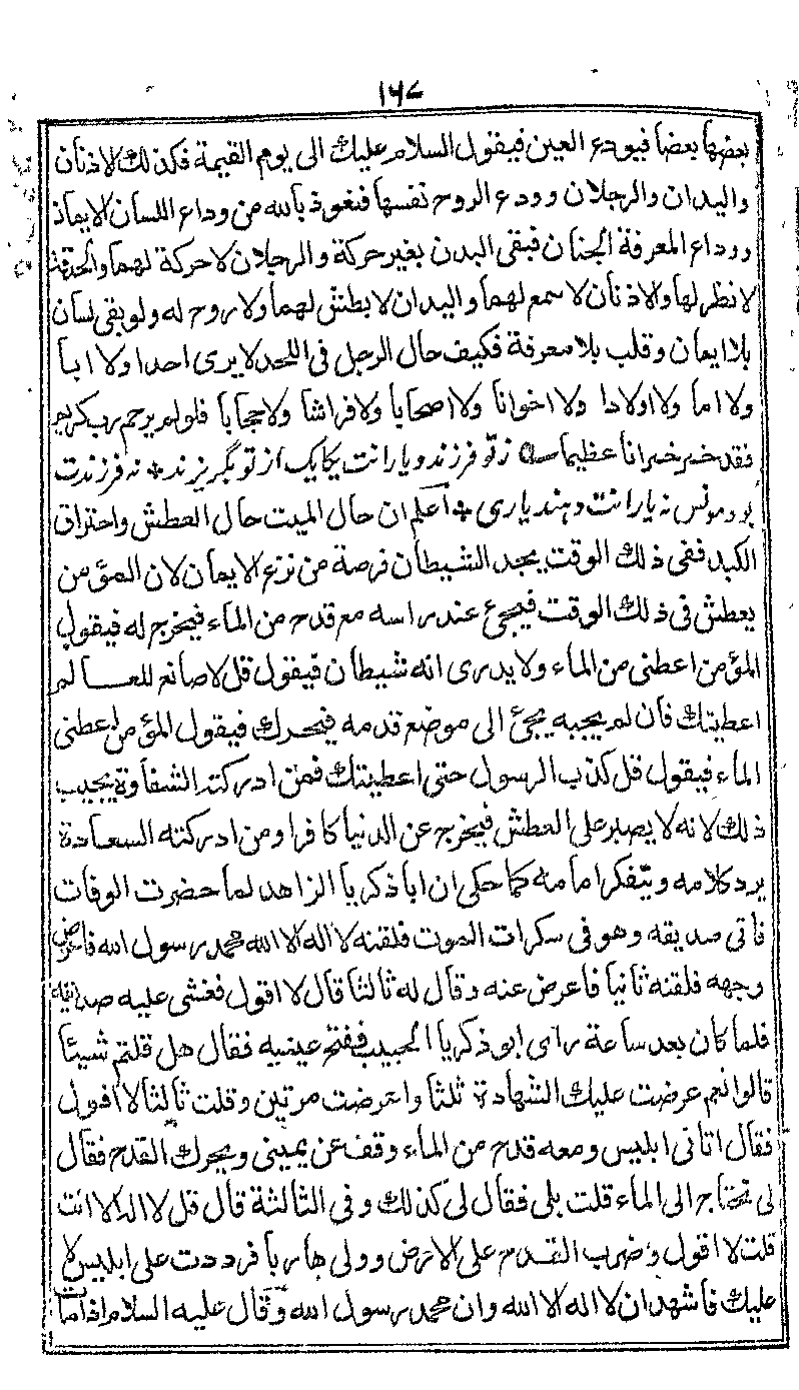 ١٦٧
بعضها بعضا فيودع العين فيقول السلام عليك الى يوم القيمة فكذلك الاذنان
واليدان والرجلان وودع الروح نفسها فنعوذ بالله من وداع اللسان الايمان
ووداع المعرفة الجنان فبقى البدن بغير حركة والرجلان لاحركة لهما والحدقة
لانظر لها والاذنان لاسمع لهما واليدان لابطش لهما ولا روح له ولو بقى لسان
بلا ايمان وقلب بلا معرفة فكيف حال الرجل فى اللحد لايرى احدا ولا ابا
ولا اما ولا اولادا ولا اخوانا ولا اصحابا ولا فراشا ولا حجابا فلو لم يرحم رب كريم
فقد خسر خسرانا عظيما زتو فرزند ويارانت يكايك از تو بگريزند نه فرزندت
بود مونس نه يارانت دهند يارى اعلم ان حال الميت حال العطش واحتراق
الكبد ففى ذلك الوقت يجد الشيطان فرصة من نزع الايمان لان المؤمن
يعطش فى ذلك الوقت فيجئ عند راسه مع قدح من الماء فيخرج له فيقول
المؤمن اعطنى من الماء ولا يدرى انه شيطان فيقول قل لاصانع للعالم
اعطيتك فان لم يجبه يجئ الى موضع قدمه فيحرك فيقول المؤمن اعطنى
الماء فيقول قل كذب الرسول حتى اعطيتك فمن ادركته الشقاوة يجيب
ذلك لانه لا يصبر على العطش فيخرج عن الدنيا كافرا ومن ادركته السعادة
يرد كلامه ويتفكر امامه كما حكى ان ابا ذكريا الزاهد لما حضرت الوفات
فاتى صديقه وهو فى سكرات الموت فلقنه لا اله الا الله محمد رسول الله فاعرض
وجهه فلقنه ثانيا فاعرض عنه وقال له ثالثا قال لا اقول فغشى عليه صديقه
فلما كان بعد ساعة راى ابو ذكريا الحبيب ففتح عينيه فقال هل قلتم شيئا
قالوا نعم عرضت عليك الشهادة ثلثا واعرضت مرتين وقلت ثالثا لا اقول
فقال اتانى ابليس ومعه قدح من الماء وقف عن يمينى ويحرك القدح فقال
لى تحتاج الى الماء قلت بلى فقال لى كذلك وفى الثالثة قال قل لا اله الا انت
قلت لا اقول وضرب القدح على الارض وولى هاربا فرددت على ابليس لا
عليك فاشهد ان لا اله الا الله وان محمد رسول الله وقال عليه السلام اذا مات